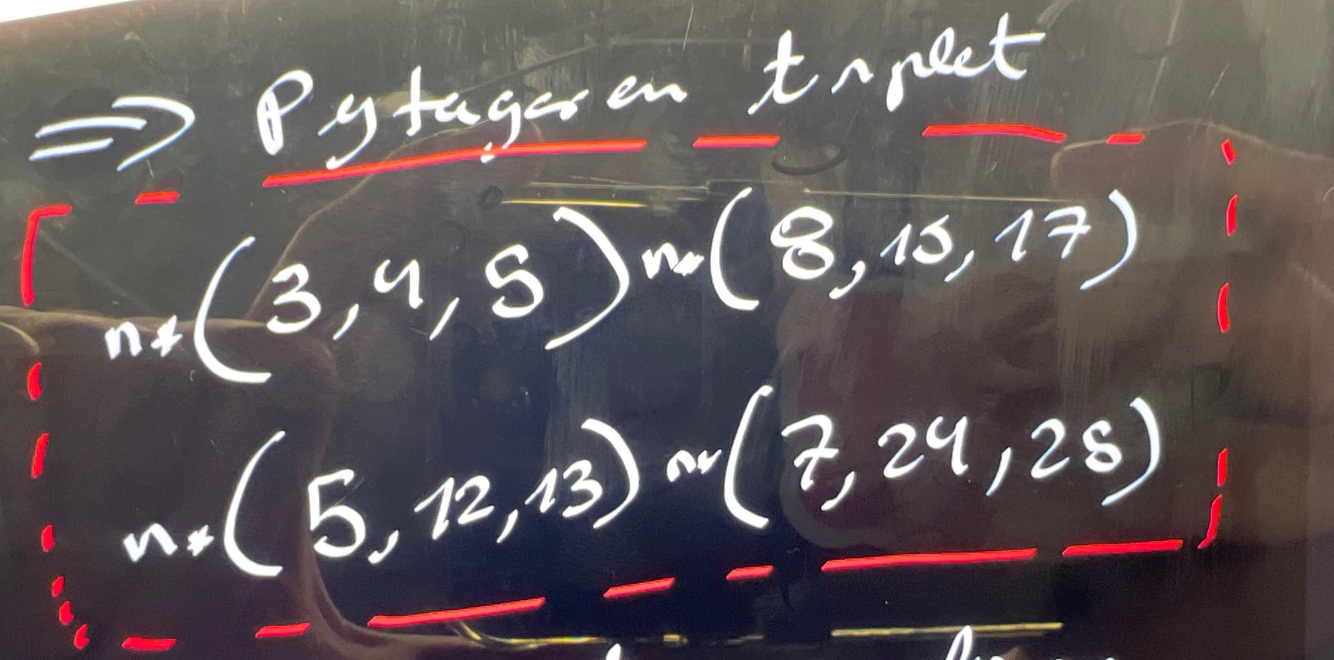 ⇒ Pytagoren triplet
n*(3,4,5) n*(8,15,17)
n*(5,12,13) n*(7,24,25)